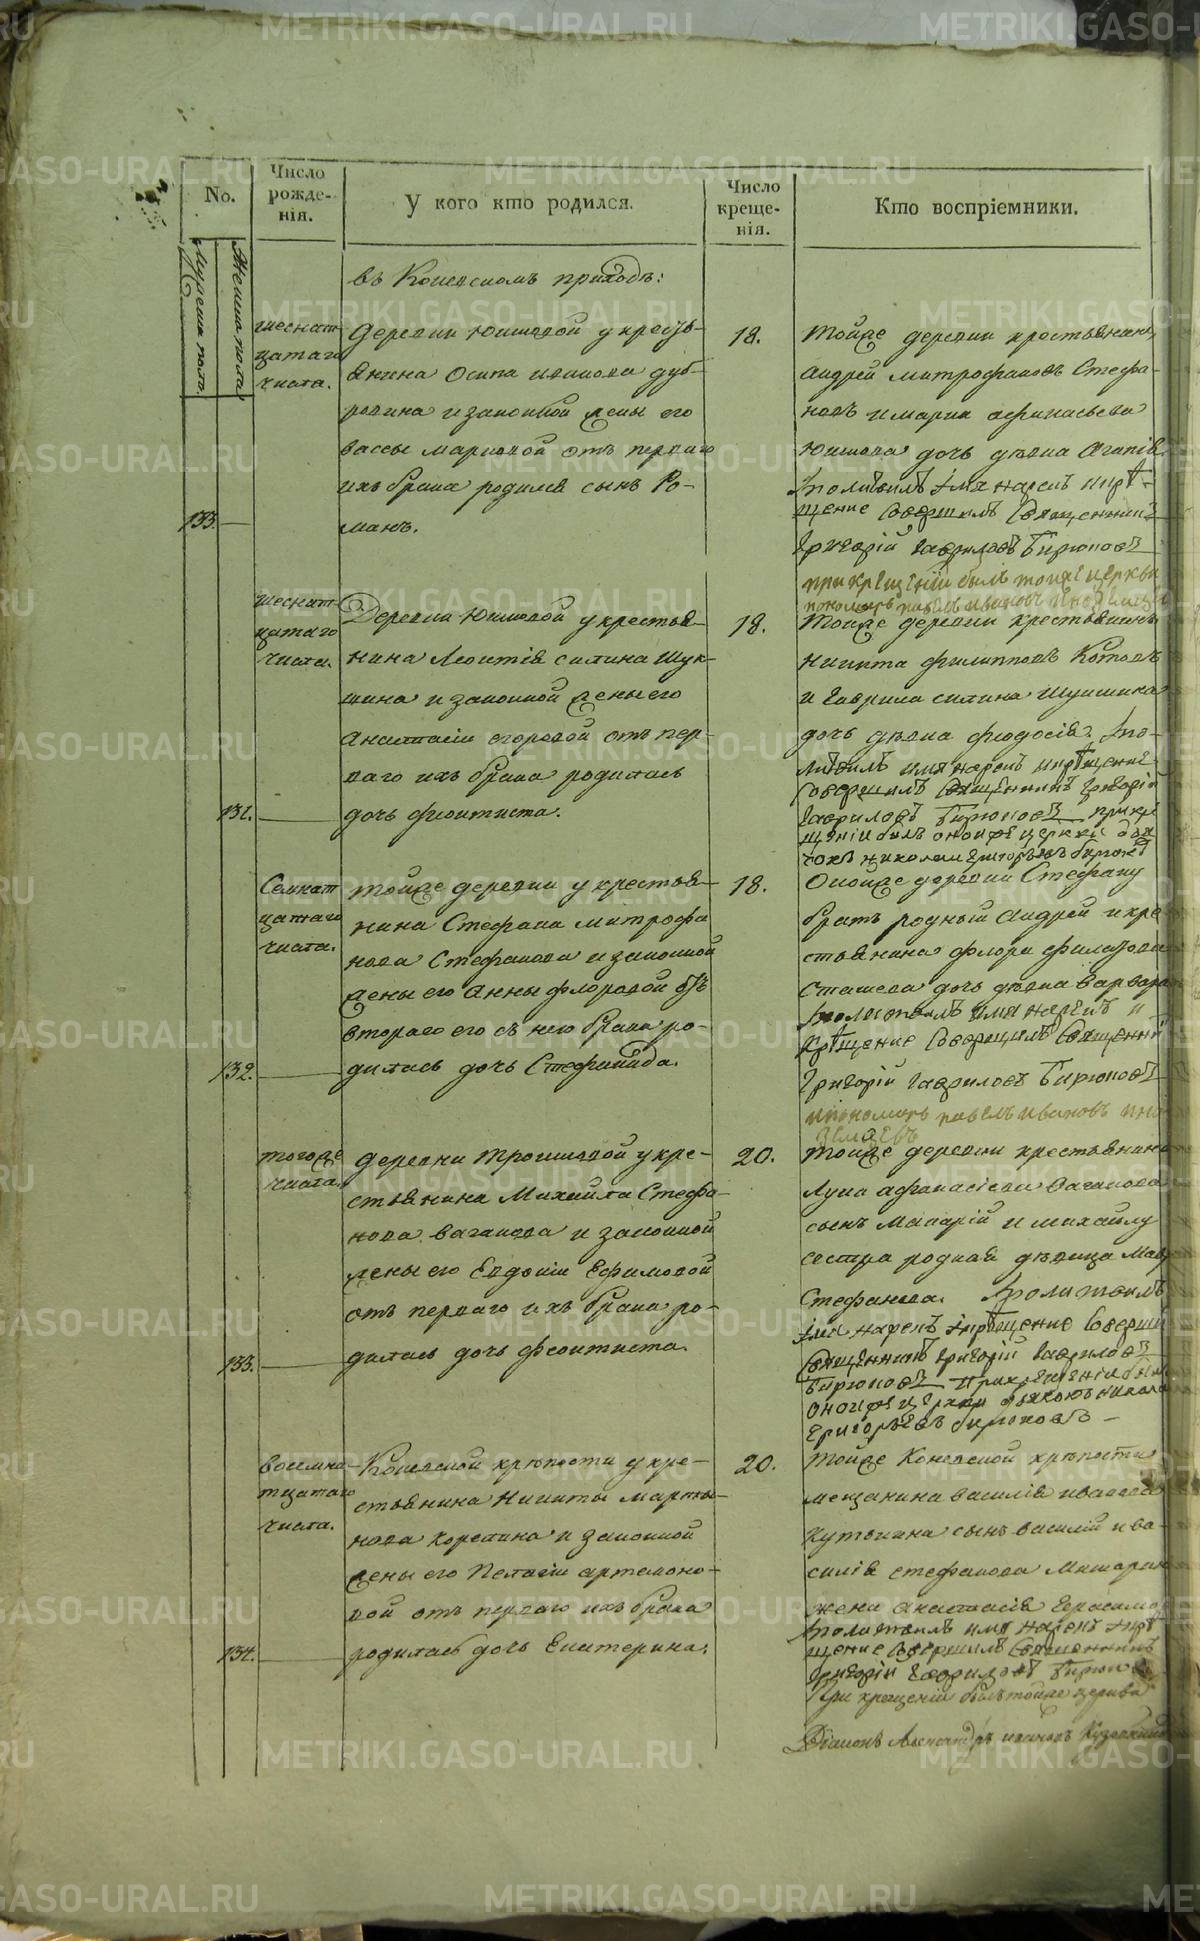 No.
Число
рожде-
нія.
У кого кто родился.
Число
креще-
нія.
Кто воспріемники.
Мужеска пола.
Женска пола
въ Коневскомъ приходѣ:
133.
шеснат
цатаго
числа.
деревни Юшковой у кресть-
янина Осипа иванова дуб-
ровина и законной жены его
вассы марковой отъ перваго
ихъ брака родился сынъ Ро-
манъ.
18.
тойже деревни крестьянинъ
андрей митрофановъ Стефа-
новъ и марка афанасьева
дочь дѣвка Агапія
молитвилъ имя нарекъ и кре-
щение совершилъ Священникъ
Григорій Гавриловъ Бирюковъ
при крещеніи былъ тойже церкви
пономарь павелъ ивановъ
131.
шеснат
цатаго
числа.
Деревни Юшковой у крестья-
нина Леонтія силина Шук-
шина и законной жены его
Анастасіи егоровой отъ пер-
ваго ихъ брака родилась
дочь феоктиста.
18.
Тойже деревни крестьянинъ
Никита филипповъ Котовъ
и Гаврила силина Шукшина
дочь дѣвка феодосія. мо-
литвилъ имя нарекъ и крещение
Совершилъ Священникъ Григорій
Гавриловъ Бирюковъ при кре
щеніи былъ оной же церкви дья
чокъ николай Григорьевъ бирюковъ
132.
Семнат
цатаго
числа.
тойже деревни у крестья-
нина Стефана митрофа
нова Стефанова и законной
жены его Анны флоровой отъ
втораго его съ нею брака ро-
дилась дочь Стефанида.
18.
Оной же деревни Стефану
братъ родный андрей и кре
стьянина флора филатова
Сташева дочь дѣвка варвара
молитвилъ имя нарекъ и
крещение Совершилъ Священникъ
Григорій Гавриловъ Бирюковъ
и пономарь павелъ ивановъ ино
земцевъ
133.
тогоже
числа.
деревни у кре-
стьянина Михайла Стефа-
нова ваганова и законной
жены его Евдокіи Ефимовой
отъ перваго ихъ брака ро-
дилась дочь феоктиста.
20.
тойже деревни крестьянина
Луки афанасіева ваганова
сынъ макарій и михайлу
сестра родная дѣвица
Стефанова. молитвилъ
имя нарекъ и крещение Соверши
Священникъ Григорій Гавриловъ
Бирюковъ при крещеніи былъ
оной же церкви дьячокъ никола
Григорьевъ бирюковъ
134.
восемна-
тцатаго
числа.
Коневской крѣпости у кре-
стьянина Никиты марты-
нова корелина и законной
жены его Пелагіи артемоно-
вой отъ перваго ихъ брака
родилась дочь Екатерина.
20.
тойже Коневской крѣпости
мещанина василія
сынъ василій и ва-
силія стефанова
жена анастасія Герасимо
молитвилъ имя нарекъ и кре
щение Совершилъ Священникъ
Григорій Гавриловъ Бирюко
При крещеніи былъ тойже церкви
Діаконъ Александръ ивановъ
METRIKI.GASO-URAL.RU